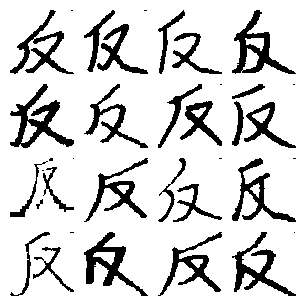 反反反反
反反反反
反反反反
反反反反